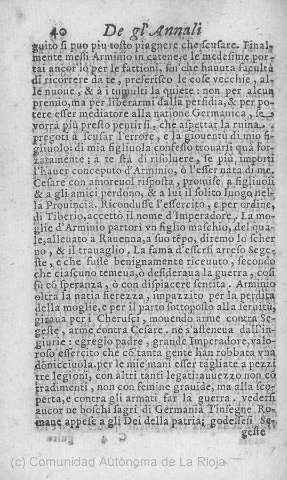 40 De gl'Annali
guito si puo piu tosto piagnere che scusare. Final-
mente messi Arminio in catene, e le medesime por-
tai ancor io per le fattioni, sui che hauuta facultà
di ricorrere da te, preferisco le cose vecchie, al-
le nuoue, & à i tumulti la quiete: non per alcun
premio, ma per liberarmi dalla perfidia, & per po-
tere esser mediatore alla natione Germanica, se
vorrà piu presto pentirsi, che aspettar la ruina,
pregoti à scusar l'errore, e la giouentù di mio fi-
gliuolo: di mia figliuola confesso trouarsi quà for-
zatamente; à te stà di risoluere, se piu, importi
l'hauer conceputo d'Arminio, ò l'esser nata di me.
Cesare con amoreuol risposta, promise à figliuoli
& à gli amici perdono, & à lui il solito luogo nel-
la Prouincia. Ricondusse l'essercito, e per ordine,
di Tiberio, accettò il nome d'Imperadore. La mo-
glie d'Arminio partorì vn figlio maschio, del qua-
le, alleuato a Rauenna, à suo tẽpo, diremo lo scher
no, & il trauaglio. La fama d'essersi arreso Sege-
ste, e che fusse benignamente riceuuto, secondo
che ciascuno temeua, ò desideraua la guerra, così
fù cõ speranza, ò con dispiacere sentita. Arminio
oltra la natia fierezza, impazzito per la perdita
della moglie, e per il parto sottoposto alla seruitù,
giraua per i Cherusci, mouendo arme contra Se-
geste, arme contra Cesare. nè s'asteneua dall'in-
giurie: egregio padre, grande Imperadore, valo-
roso essercito che cõ tanta gente han robbata vna
donicciuola. per le mie mani esser tagliate a pezzi
tre legioni, con altri tanti legati: auuezzo non cò
tradimenti, non con femine grauide, ma alla sco-
perta, e contra gli armati far la guerra. vedersi
ancor ne boschi sagri di Germania l'insegne Ro-
mane appese a gli Dei della patria; godessesi Se-
geste
(c) Comunidad Autónoma de La Rioja